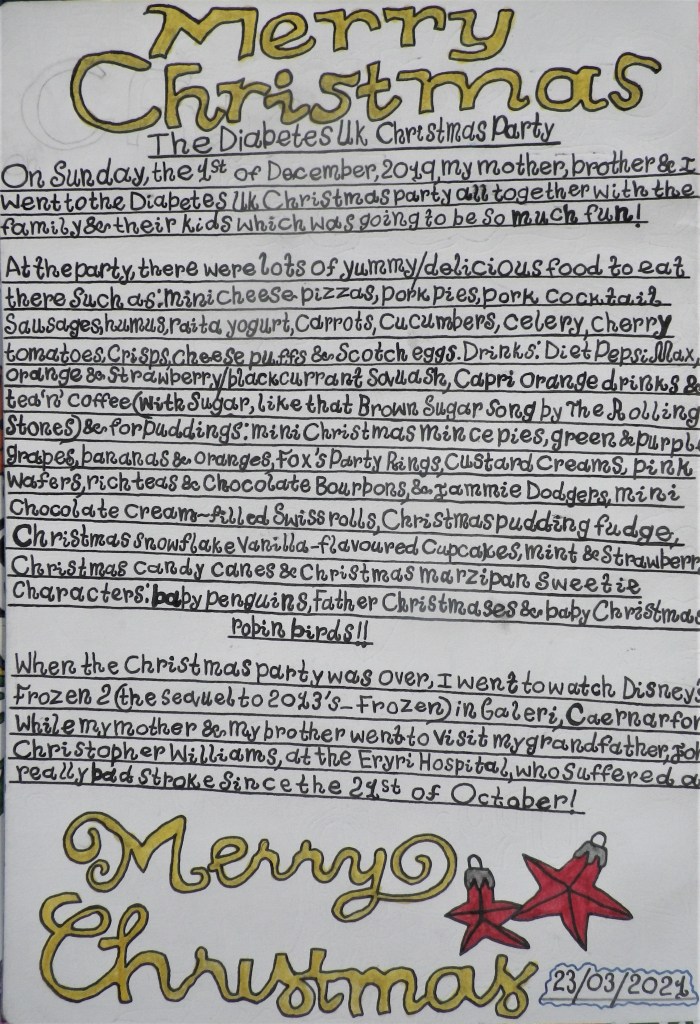 Merry
Christmas
The Diabetes Uk Christmas Party
On Sunday, the 1st of December, 2019, my mother, brother & I
went to the Diabetes Uk Christmas party all together with the
family & their kids which was going to be so much fun!
At the party, there were lots of yummy/delicious food to eat
there such as: mini cheese pizzas, pork pies, pork cocktail
sausages, humus, raita yogurt, carrots, cucumbers, celery, cherry
tomatoes, crisps, cheese puffs & Scotch eggs. Drinks: Diet Pepsi Max,
orange & strawberry/blackcurrant squash, Capri orange drinks &
tea 'n' coffee (with sugar, like that Brown Sugar song by The Rolling
Stones) & for puddings: mini Christmas mince pies, green & purpl
grapes, bananas & oranges, Fox's Party Rings, Custard Creams, pink
wafers, rich teas & Chocolate Bourbons, & Jammie Dodgers, mini
Chocolate cream-filled Swiss rolls, Christmas pudding fudge,
Christmas snowflake vanilla-flavoured Cupcakes, mint & strawberr
Christmas candy canes & Christmas marzipan sweetie
Characters: baby penguins, Father Christmases & baby Christma
robin birds!!
When the Christmas party was over, I went to watch Disney's
Frozen 2 (the sequel to 2013's - Frozen) in Galeri, Caernarfon
while my mother & my brother went to visit my grandfather, Joh
Christopher Williams, at the Eryri Hospital, who suffered a
really bad stroke since the 21st of October!
Merry
Christmas
23/03/2021